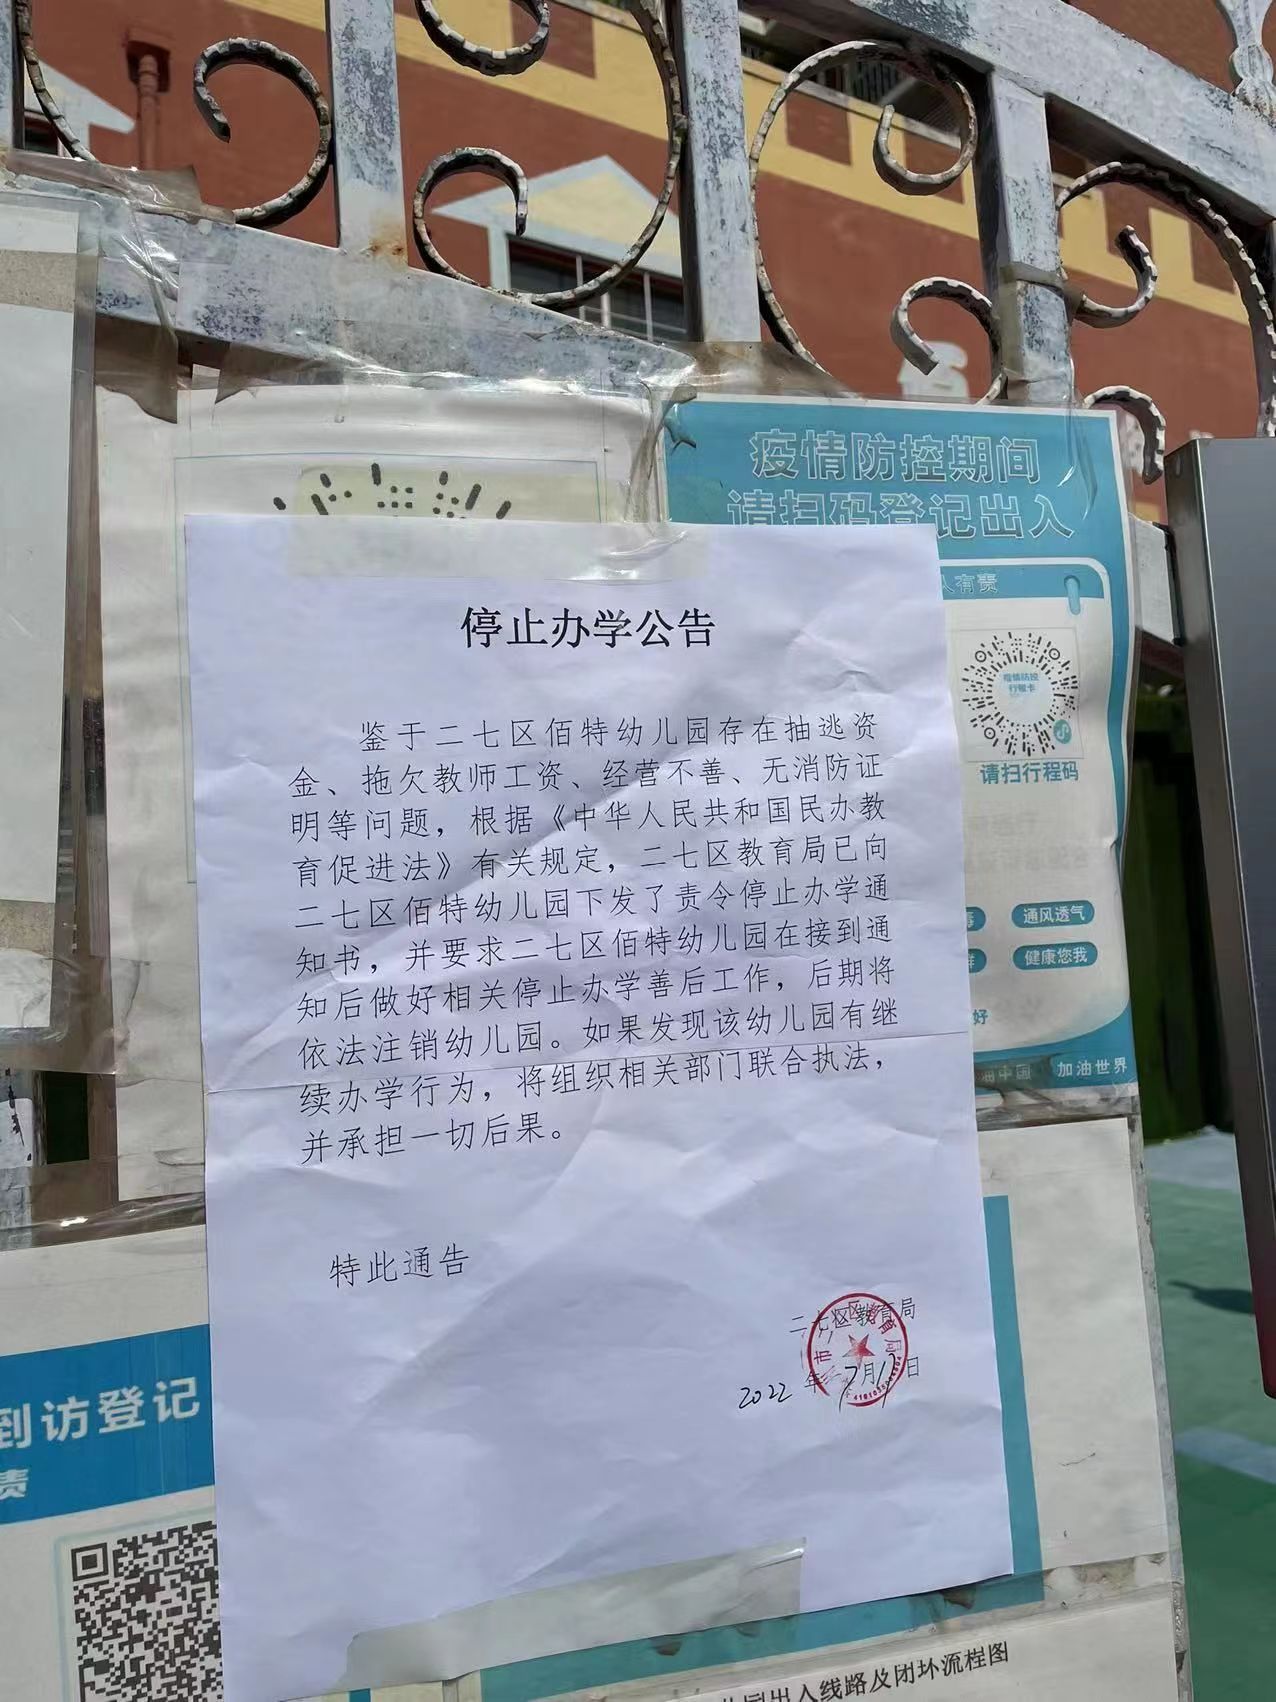 疫情防控期间
请扫码登记出入
人有责
疫情防控
行程卡
请扫行程码
通风透气
健康您我
好
加油中国 加油世界
停止办学公告
鉴于二七区佰特幼儿园存在抽逃资
金、拖欠教师工资、经营不善、无消防证
明等问题，根据《中华人民共和国民办教
育促进法》有关规定，二七区教育局已向
二七区佰特幼儿园下发了责令停止办学通
知书，并要求二七区佰特幼儿园在接到通
知后做好相关停止办学善后工作，后期将
依法注销幼儿园。如果发现该幼儿园有继
续办学行为，将组织相关部门联合执法，
并承担一切后果。
特此通告
二七区教育局
2022 年 7月17日
到访登记
责
出入线路及闭环流程图